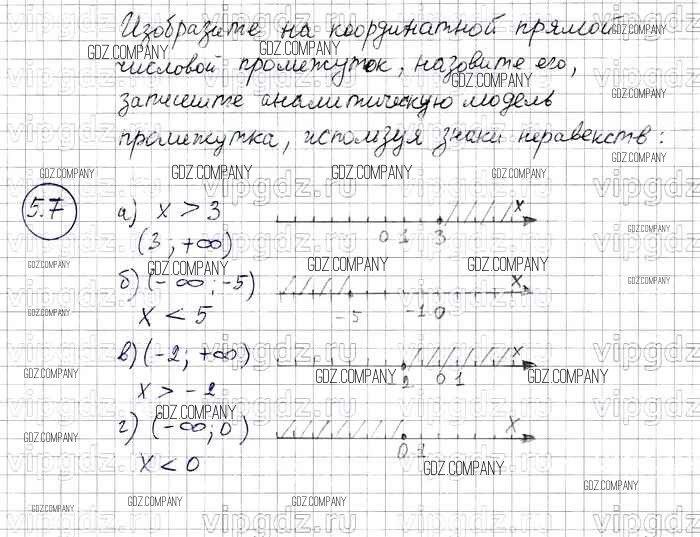 Изобразите на координатной прямой
числовой промежуток, назовите его,
запишите аналитическую модель
промежутка, используя знаки неравенств:
5.7
а) x > 3
(3; +∞)
0 1 3 x
б) (-∞; -5)
x < 5
-5 -1 0 x
в) (-2; +∞)
x > -2
-2 0 1 x
г) (-∞; 0)
x < 0
0 1 x
GDZ.COMPANY
vipgdz.ru